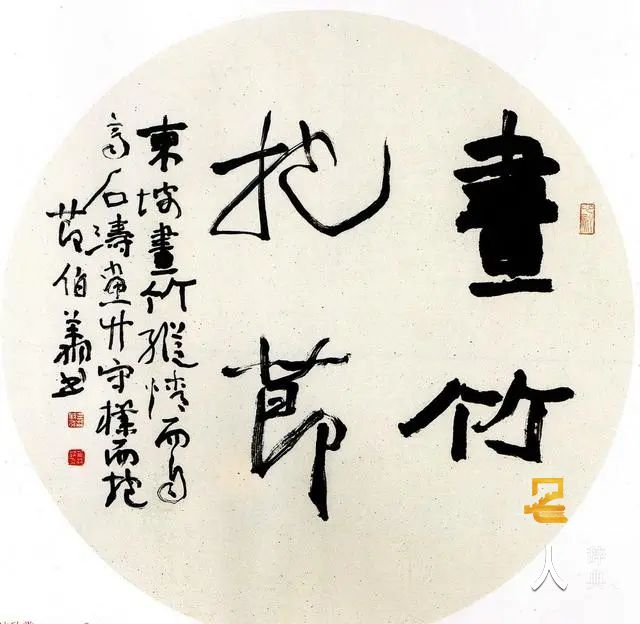 畫竹
抱節
東坡畫竹縱情而自
高石濤畫竹守樸而抱
節伯蕭書
名人
辞典